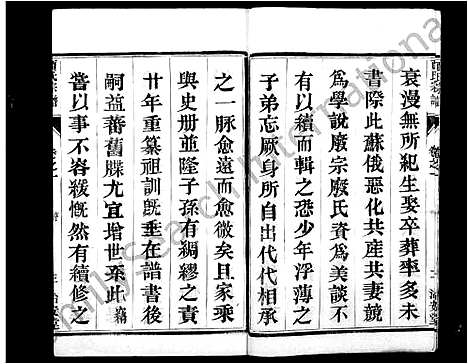 衰漫無所紀生娶卒葬率多未
書際此蘇俄惡化共産共妻競
為學説廢宗廢氏資為美談不
有以續而輯之恐少年浮薄之
子弟忘厥身所自出代代相承
之一脉愈遠而愈微矣且家乘
與史册並隆子孫有綢繆之責
廿年重纂祖訓既垂在譜書後
嗣益蕃舊牒尤宜增世系此
嘗以事不容緩慨然有續修之